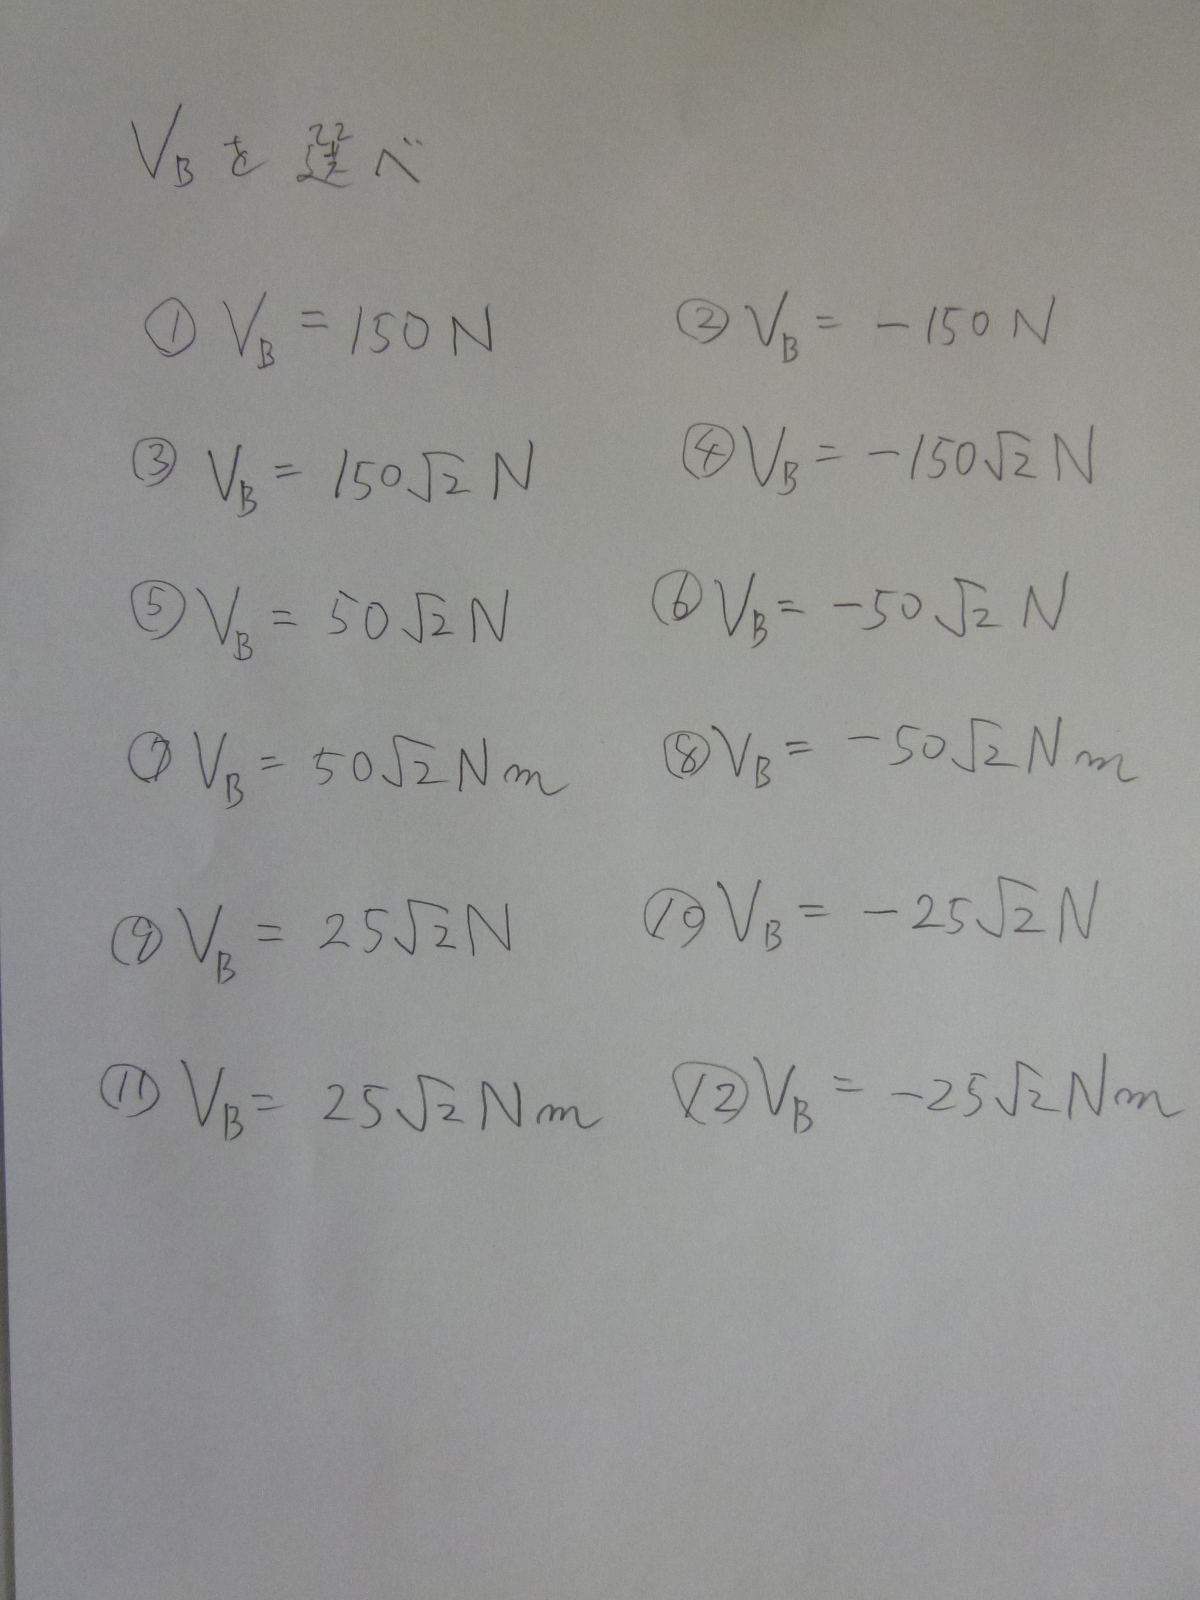 V_Bを選べ
① V_B = 150N ② V_B = -150N
③ V_B = 150√2 N ④ V_B = -150√2 N
⑤ V_B = 50√2 N ⑥ V_B = -50√2 N
⑦ V_B = 50√2 Nm ⑧ V_B = -50√2 Nm
⑨ V_B = 25√2 N ⑩ V_B = -25√2 N
⑪ V_B = 25√2 Nm ⑫ V_B = -25√2 Nm